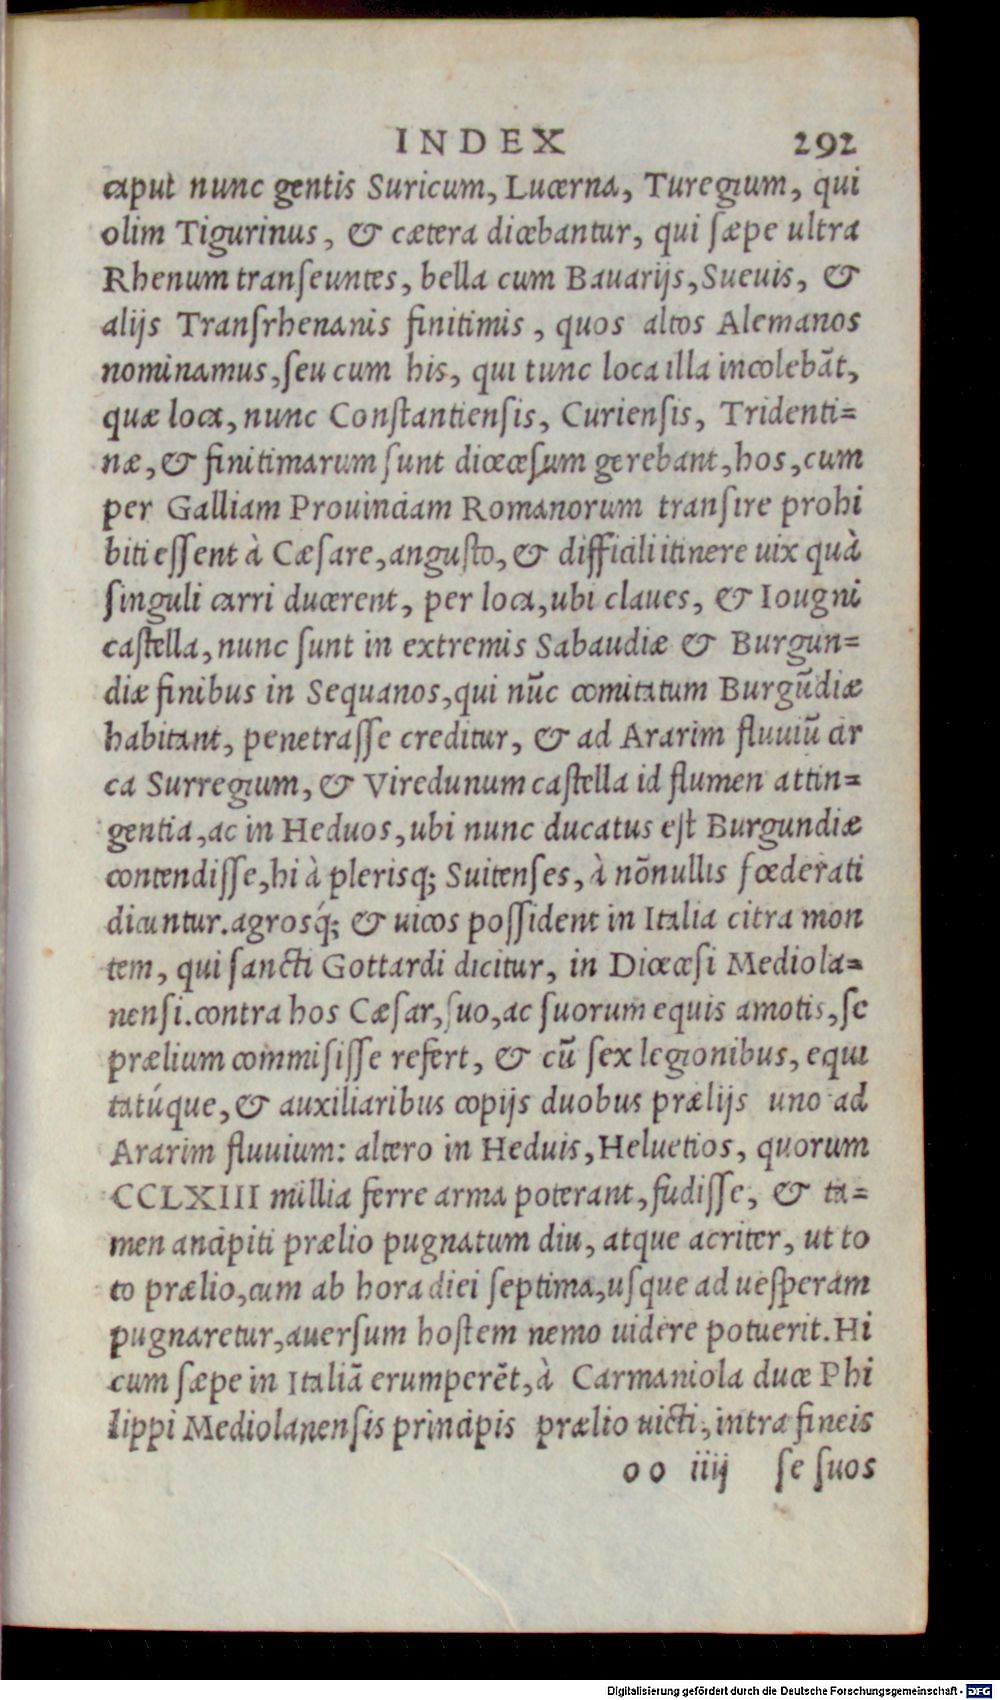 INDEX 292
caput nunc gentis Suricum, Lucerna, Turegium, qui
olim Tigurinus, & cætera dicebantur, qui sæpe ultra
Rhenum transeuntes, bella cum Bauarijs, Sueuis, &
alijs Transrhenanis finitimis, quos altos Alemanos
nominamus, seu cum his, qui tunc loca illa incolebāt,
quæ loca, nunc Constantiensis, Curiensis, Tridenti=
næ, & finitimarum sunt diœcesum gerebant, hos, cum
per Galliam Prouinciam Romanorum transire prohi
biti essent à Cæsare, angusto, & difficili itinere uix quà
singuli carri ducerent, per loca, ubi claues, & Iougni
castella, nunc sunt in extremis Sabaudiæ & Burgun=
diæ finibus in Sequanos, qui nūc comitatum Burgūdiæ
habitant, penetrasse creditur, & ad Ararim fluuiū cir
ca Surregium, & Viredunum castella id flumen attin=
gentia, ac in Heduos, ubi nunc ducatus est Burgundiæ
contendisse, hi à plerisq; Suitenses, à nōnullis fœderati
dicuntur. agrosq́; & uicos possident in Italia citra mon
tem, qui sancti Gottardi dicitur, in Diœcesi Mediola=
nensi. contra hos Cæsar, suo, ac suorum equis amotis, se
prælium commisisse refert, & cū sex legionibus, equi
tatúque, & auxiliaribus copijs duobus prælijs uno ad
Ararim fluuium: altero in Heduis, Heluetios, quorum
CCLXIII millia ferre arma poterant, fudisse, & ta=
men ancipiti prælio pugnatum diu, atque acriter, ut to
to prælio, cum ab hora diei septima, usque ad uesperam
pugnaretur, auersum hostem nemo uidere potuerit. Hi
cum sæpe in Italiā erumperēt, à Carmaniola duce Phi
lippi Mediolanensis principis prælio uicti, intra fineis
oo iiij se suos
Digitalisierung gefördert durch die Deutsche Forschungsgemeinschaft - DFG